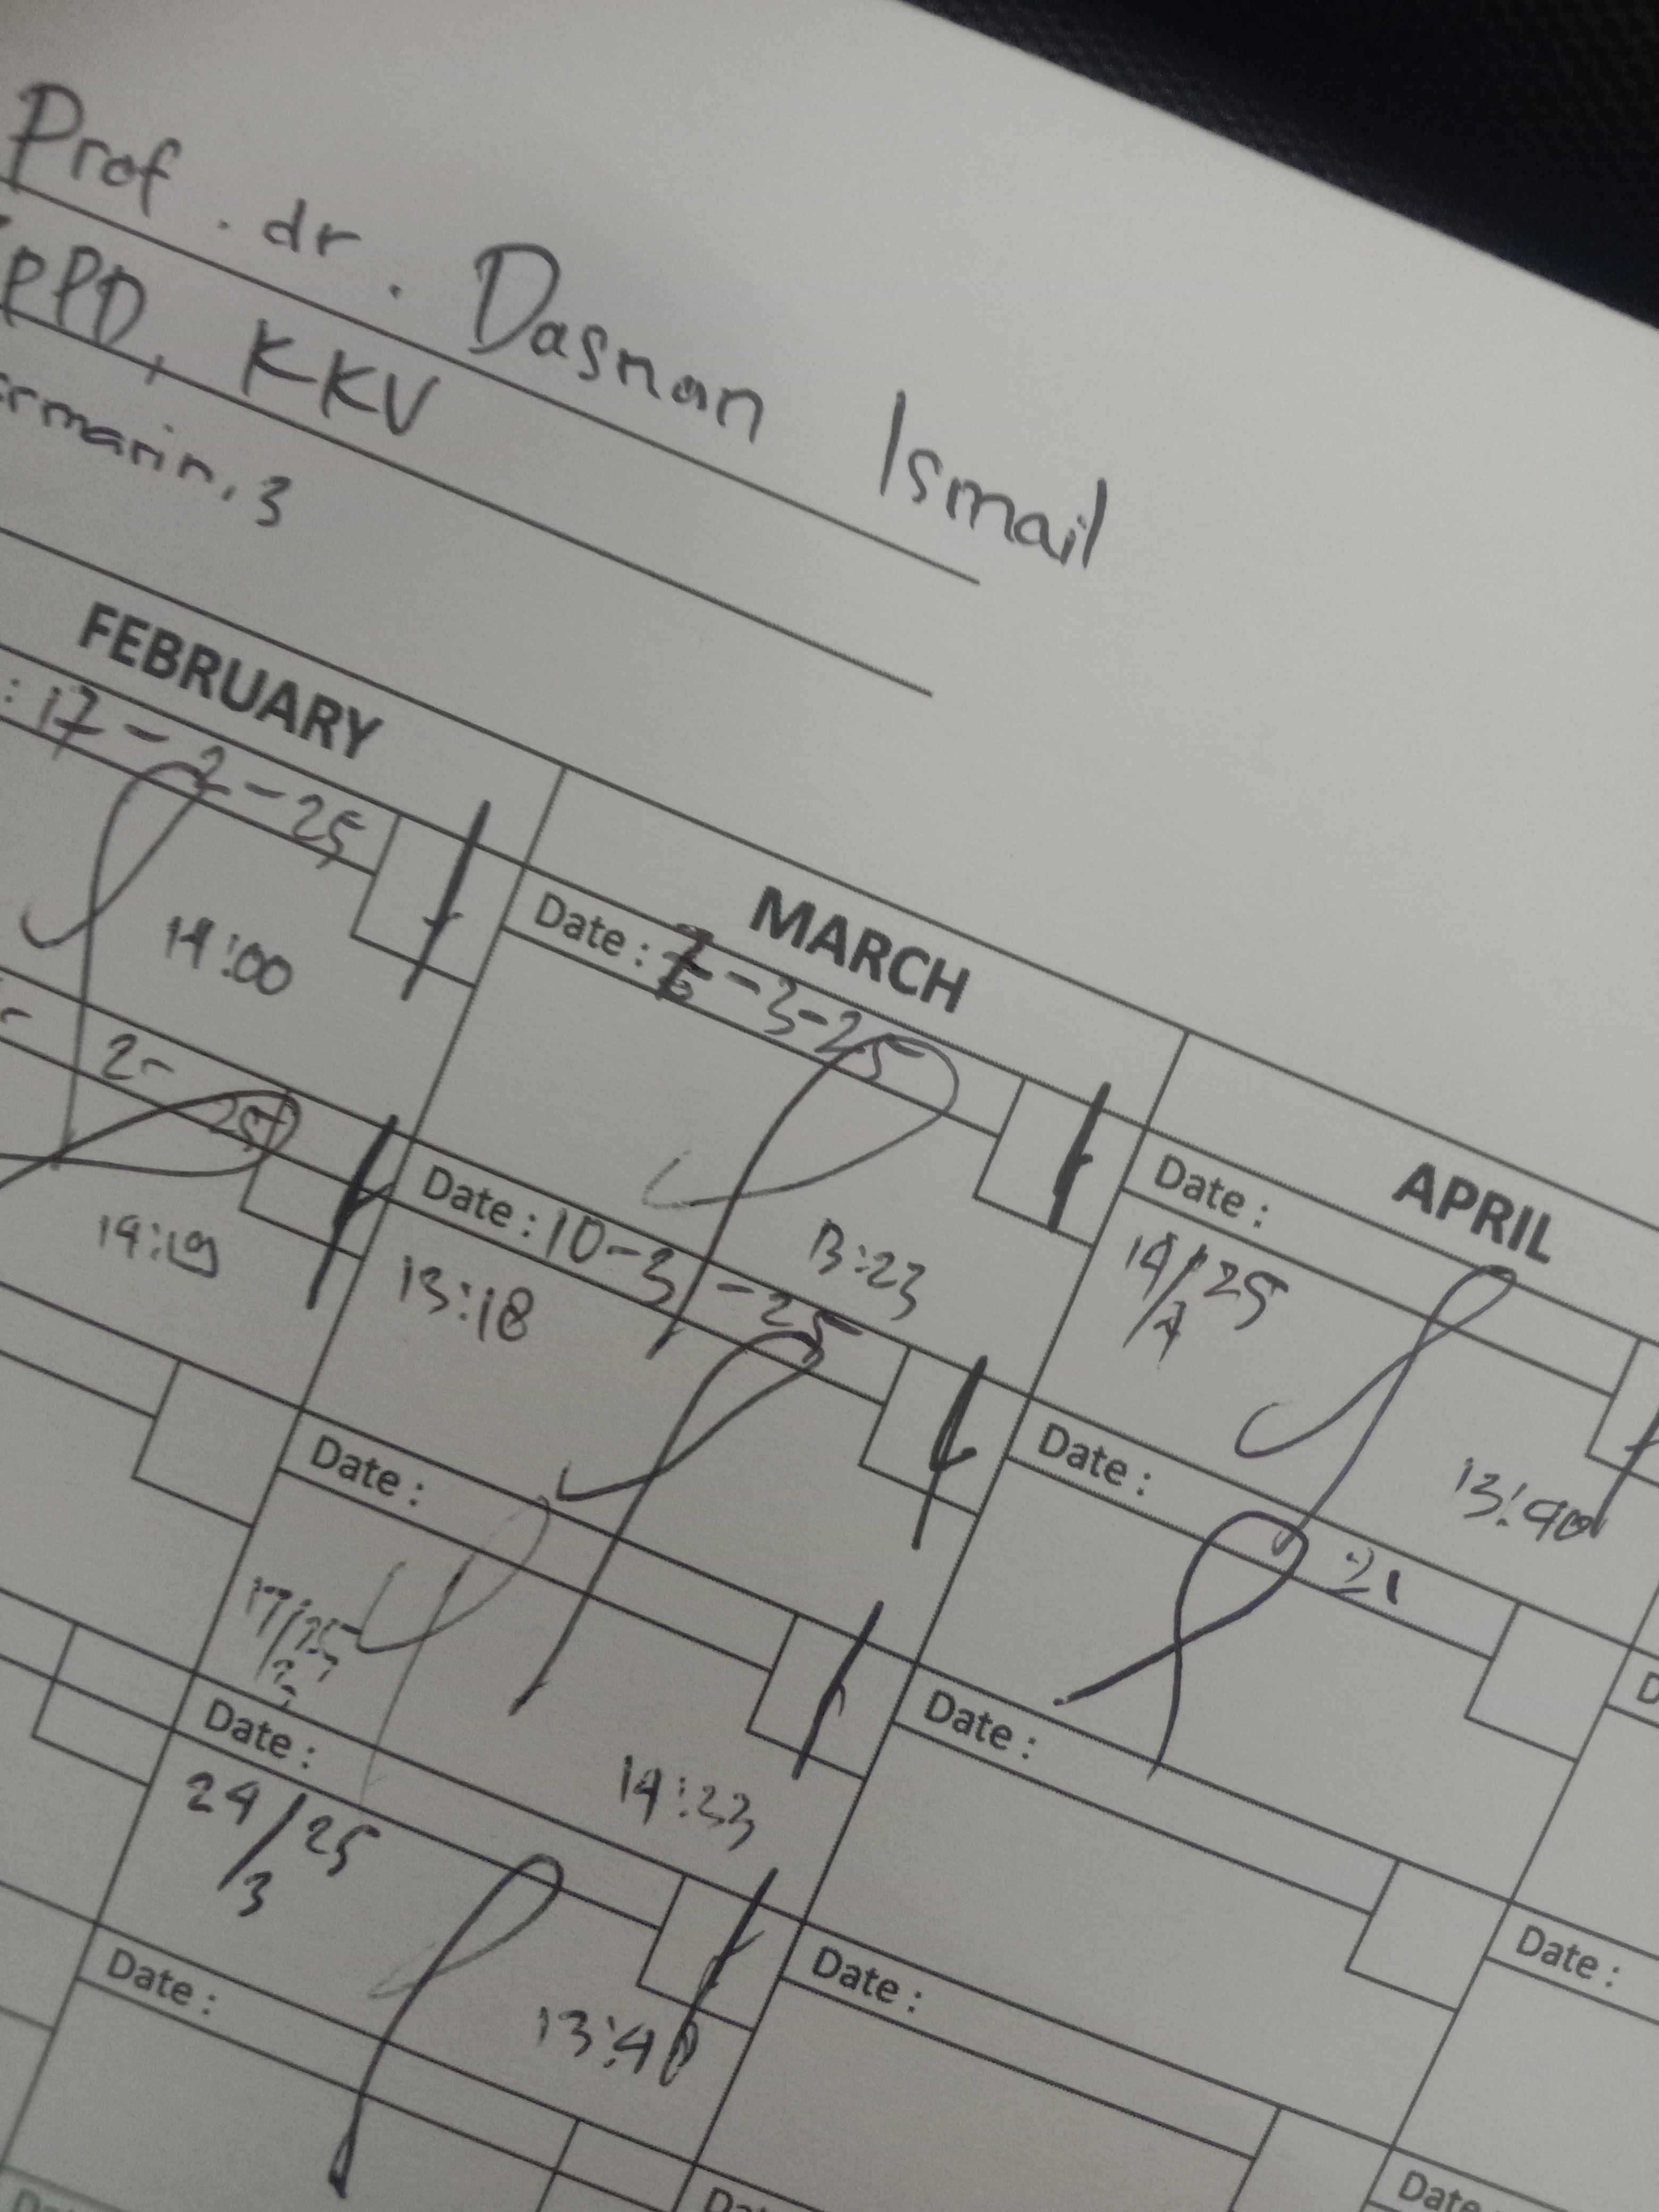 Prof. dr. Dasnan Ismail
PPD, KKV
rmarin, 3
FEBRUARY
MARCH
APRIL
: 17-2-25
14:00
Date : 7-3-25
13:23
Date :
14/25
/4
13:40
2-
25
14:19
Date : 10-3-25
13:18
Date :
21
Date :
17/25
/3
14:23
Date :
Date :
24/25
/3
13:40
Date :
Date :
Date :